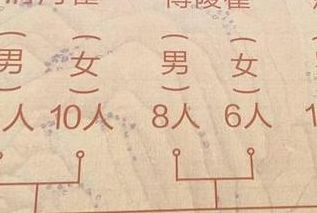 博陵崔
（男） （女） （男） （女）
人 10人 8人 6人